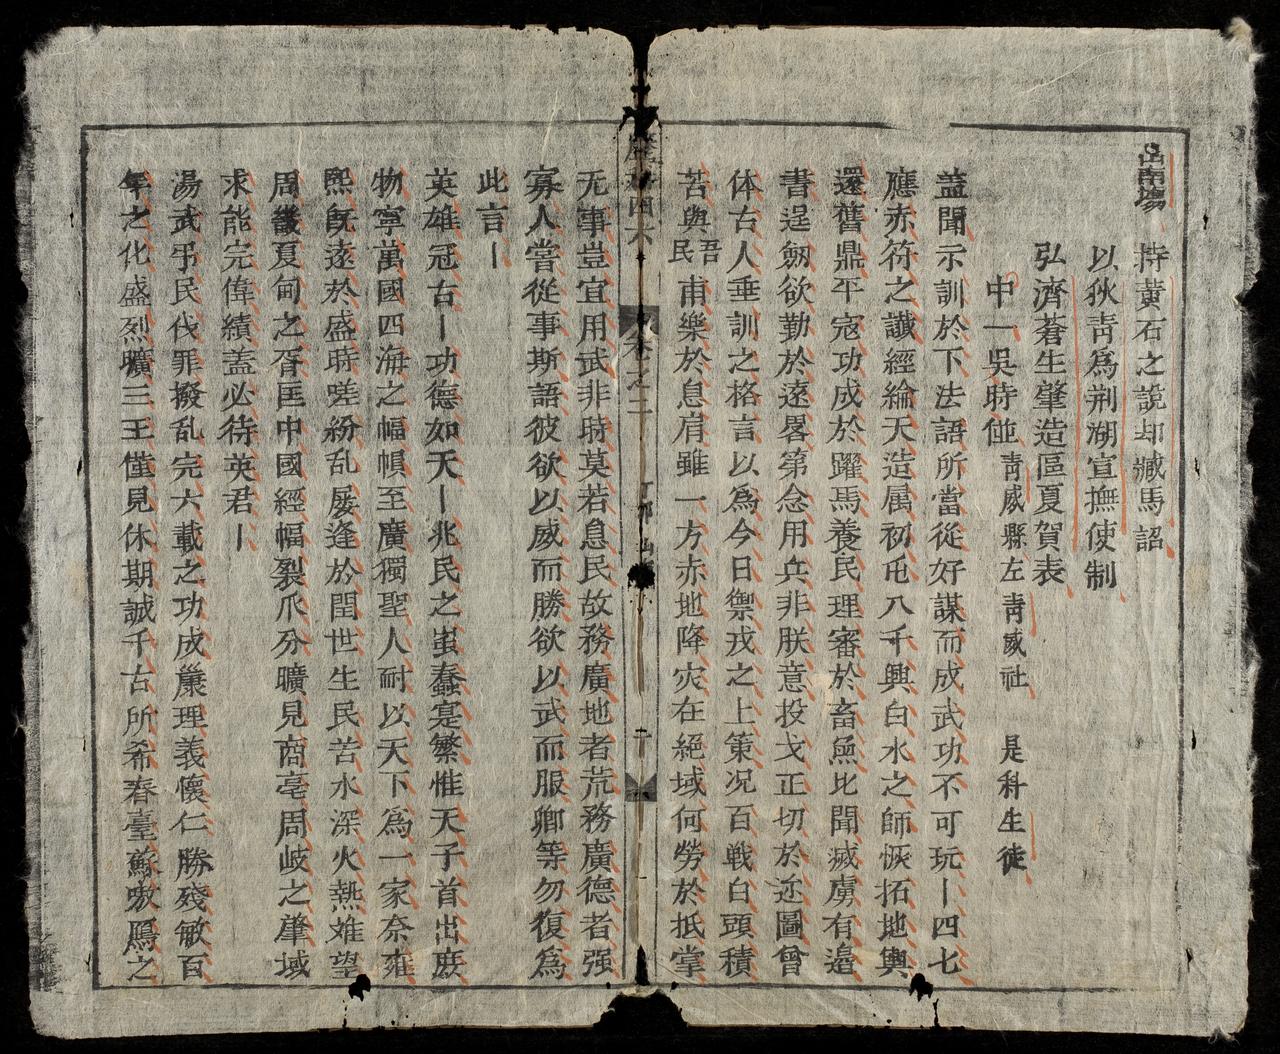 山南場 持黃石之說却臧馬詔
以狄青爲荆湖宣撫使制
弘濟蒼生肇造區夏賀表
中一吳時𠊧青威縣左青威社 是科生徒
盖聞示訓於下法語所當從好謀而成武功不可玩〡四七
應赤符之讖經綸天造属初屯八千興白水之師恢拓地輿
還舊鼎平寇功成於躍馬養民理審於畜魚比聞滅虜有邉
書逞劒欲勤於逺畧第念用兵非朕意投戈正切於近圖曾
体古人垂訓之格言以爲今日禦戎之上策况百戦白頭積
苦與吾民甫樂於息肩雖一方赤地降灾在絕域何勞於抵掌
无事豈宜用武非時莫若息民故務廣地者荒務廣德者强
寡人當從事斯語彼欲以威而勝欲以武而服卿等勿復爲
此言〡
英雄冠古〡功德如天〡兆民之蚩蠢寔繁惟天子首出庻
物寧萬國四海之幅𢄙至廣獨聖人耐以天下爲一家奈雍
熙旣逺於盛時嗟紛乱屡逢於閏世生民苦水深火熱难望
周畿夏甸之胥匡中國經幅裂爪分曠見商亳周岐之肇域
求能完偉績盖必待英君〡
湯武弔民伐罪撥乱完六載之功成䉒理義懷仁勝殘敏百
年之化盛烈曠三王僅見休期誠千古所希春臺蘇嗷鴈之
卷之二